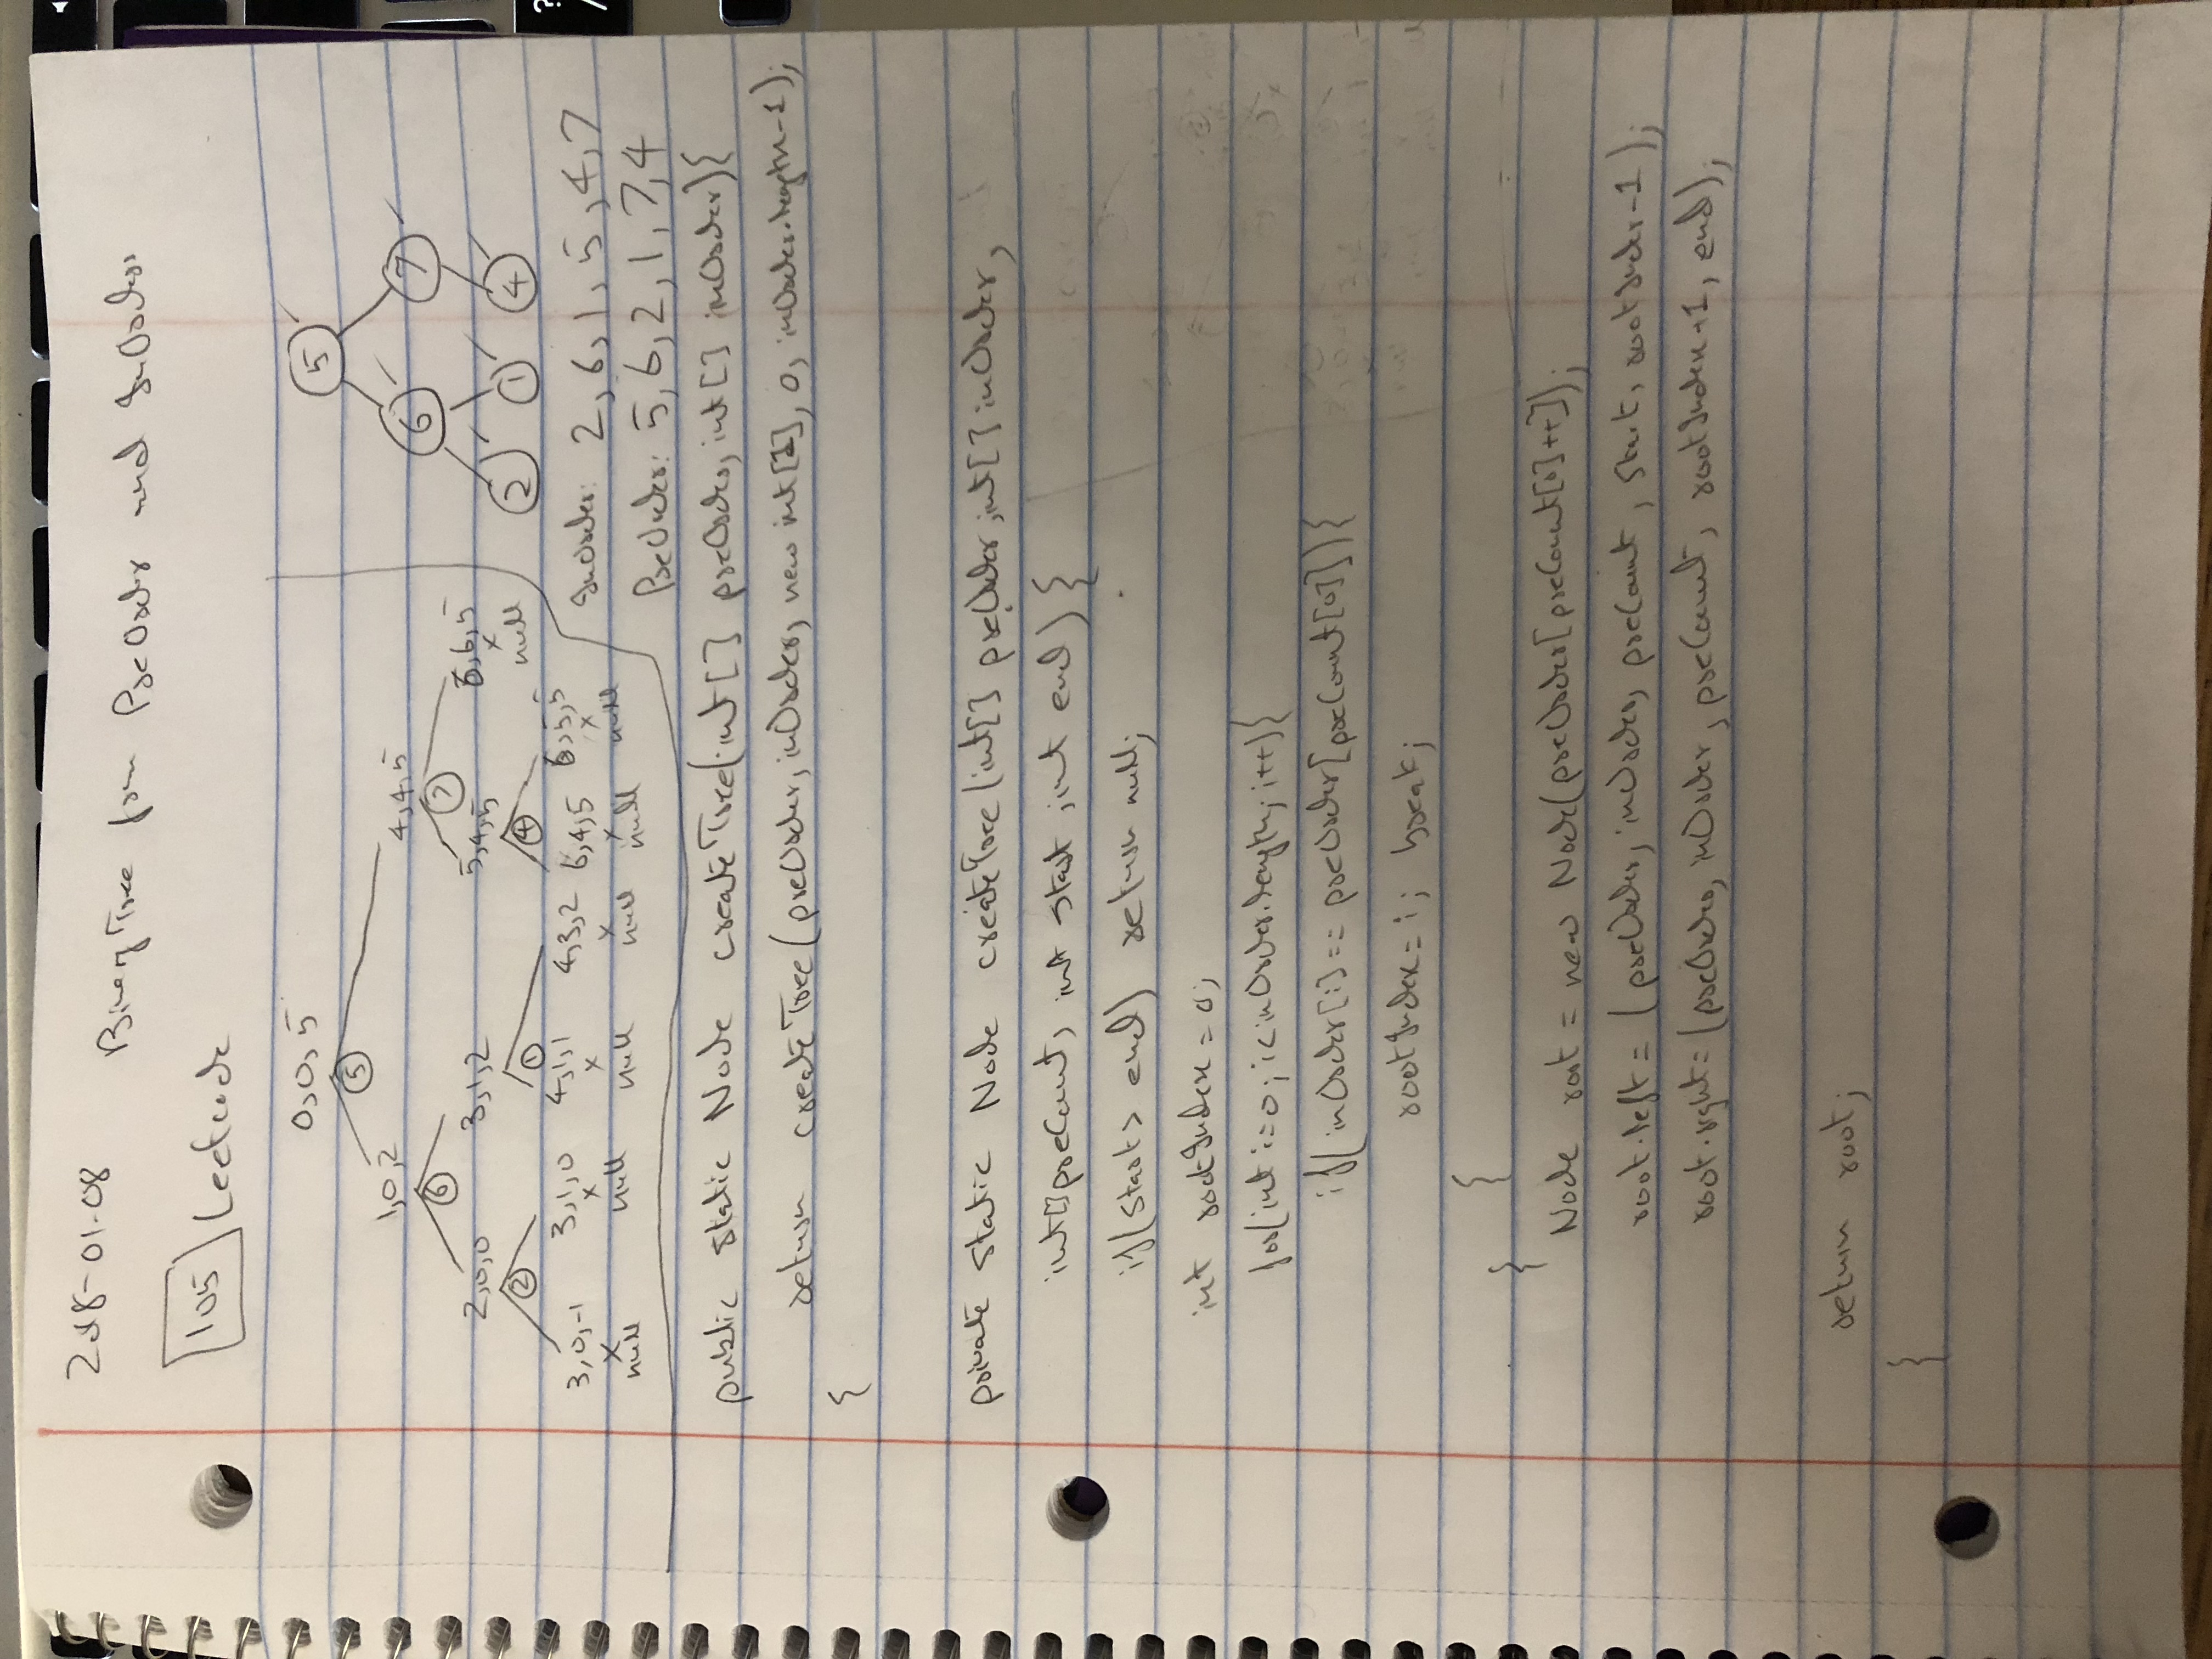 2018-01-08
Binary Tree from PreOrder and InOrder
105 Leetcode
0,0,5
5
1,0,2 4,4,5
6 7
2,0,0 3,1,2 5,4,5 6,6,5
2 1 4 x
null
3,0,-1 3,1,0 4,1,1 4,3,2 6,4,5 6,5,5
x x x x x x
null null null null null null
5
6 7
2 1 4
InOrder: 2, 6, 1, 5, 4, 7
PreOrder: 5, 6, 2, 1, 7, 4
public static Node createTree(int[] preOrder, int[] inOrder){
return createTree(preOrder, inOrder, new int[1], 0, inOrder.length-1);
{
private static Node createTree(int[] preOrder, int[] inOrder,
int[] preCount, int start, int end) {
if(start > end) return null;
int rootIndex = 0;
for(int i=0; i<inOrder.length; i++){
if(inOrder[i]== preOrder[preCount[0]]){
rootIndex = i; break;
{
}
Node root = new Node(preOrder[preCount[0]++]);
root.left = (preOrder, inOrder, preCount, start, rootIndex-1);
root.right = (preOrder, inOrder, preCount, rootIndex+1, end);
return root;
}